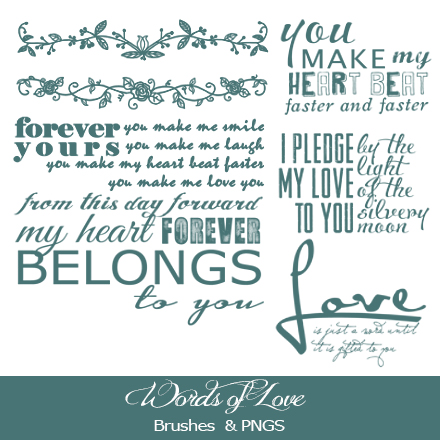 forever you make me smile
yours you make me laugh
you make my heart beat faster
you make me love you
from this day forward
my heart FOREVER
BELONGS
to you
you
MAKE my
HEART BEAT
faster and faster
I PLEDGE by the
MY LOVE light
of the
TO YOU silvery
moon
Love
is just a word until
it is gifted to you
Words of Love
Brushes & PNGS